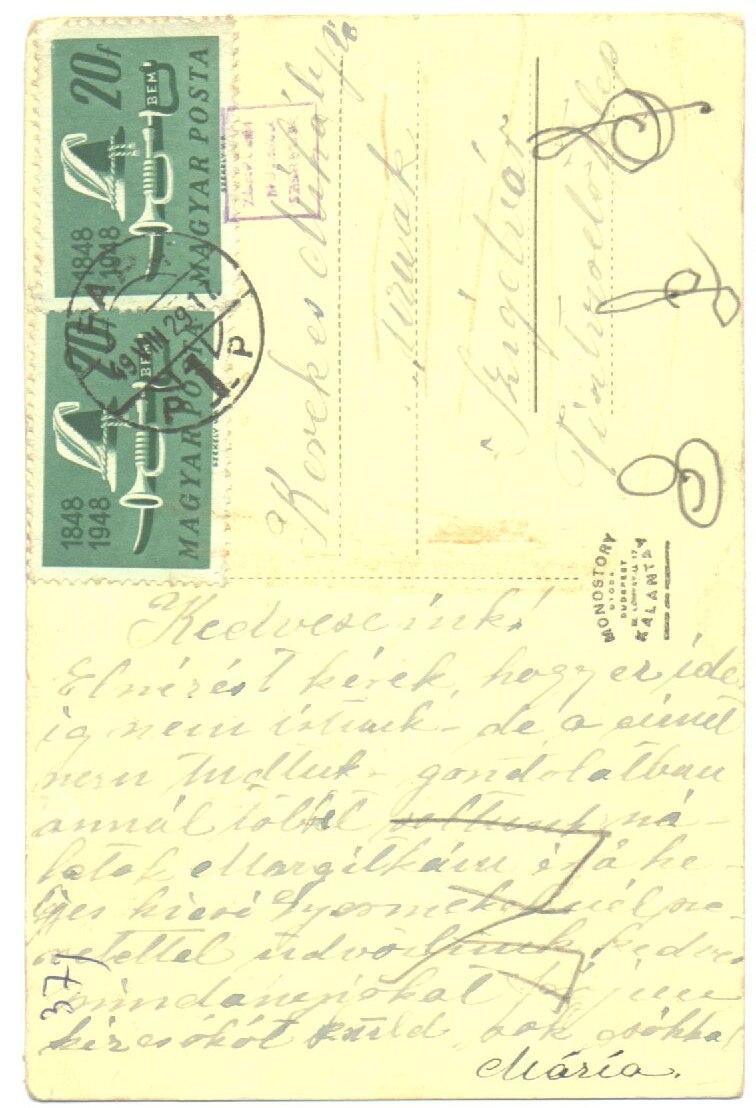 20f
BEM
1848
1948
MAGYAR POSTA
20f
BEM
1848
1948
MAGYAR POSTA
P 1 P
Kerekes Mihály
urnak
Szigetvár
MONOSTORY
BUDAPEST
KALANTAY
Kedveseink!
Elnézést kérek, hogy ez ide
ig nem írtunk - de a címet
nem tudtuk - gondolatban
annál többet voltunk ná-
latok Margitkám és a he-
lyes kicsi Gyermekeknél sze-
retettel üdvözlünk kedves
mindanyiokat
kézcsókót küld, sok csókkal
Mária.
377